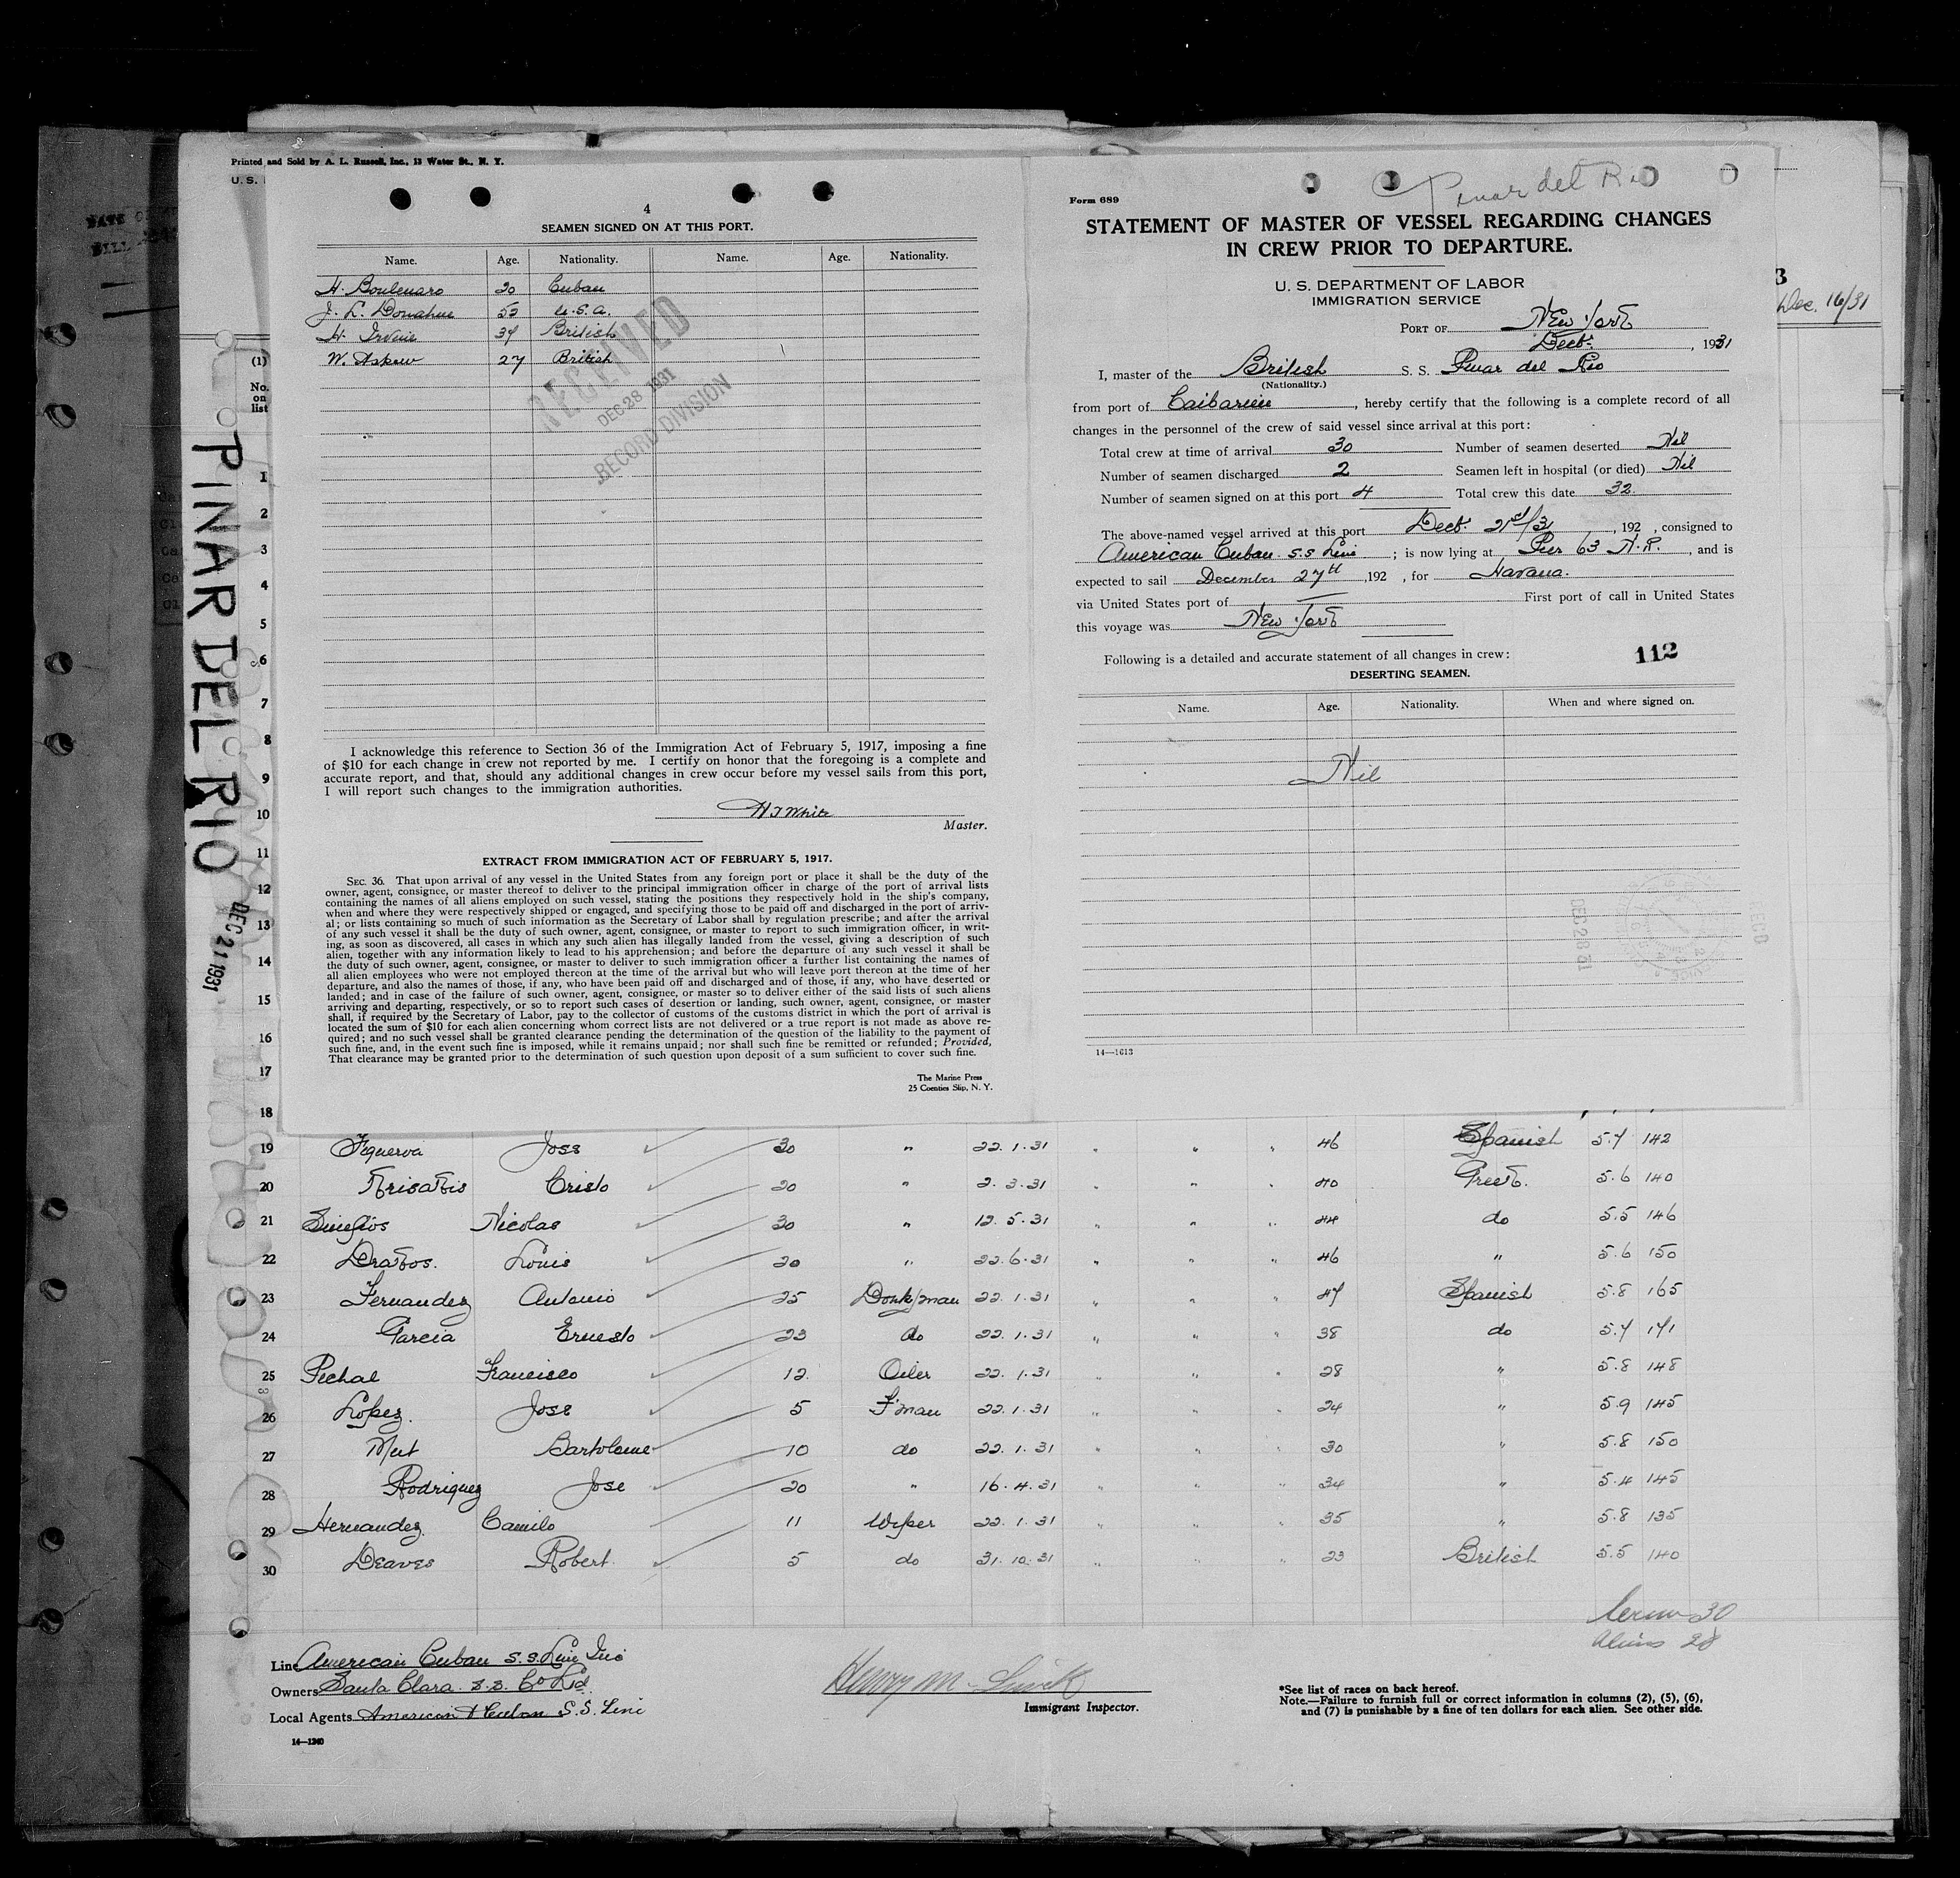 Printed and Sold by A. L. Russell, Inc., 13 Water St., N. Y.
U. S.
(1)
No.
on
list
PINAR DEL RIO
DEC 21 1931
4
SEAMEN SIGNED ON AT THIS PORT.
Name. Age. Nationality. Name. Age. Nationality.
H. 20 Cuban
J. L. Donahue 53 U.S.A.
H. Irvine British
W. Askew 27 British
RECEIVED
DEC 28 1931
RECORD DIVISION
I acknowledge this reference to Section 36 of the Immigration Act of February 5, 1917, imposing a fine
of $10 for each change in crew not reported by me. I certify on honor that the foregoing is a complete and
accurate report, and that, should any additional changes in crew occur before my vessel sails from this port,
I will report such changes to the immigration authorities.
White
Master.
EXTRACT FROM IMMIGRATION ACT OF FEBRUARY 5, 1917.
SEC. 36. That upon arrival of any vessel in the United States from any foreign port or place it shall be the duty of the
owner, agent, consignee, or master thereof to deliver to the principal immigration officer in charge of the port of arrival lists
containing the names of all aliens employed on such vessel, stating the positions they respectively hold in the ship's company,
when and where they were respectively shipped or engaged, and specifying those to be paid off and discharged in the port of arriv-
al; or lists containing so much of such information as the Secretary of Labor shall by regulation prescribe; and after the arrival
of any such vessel it shall be the duty of such owner, agent, consignee, or master to report to such immigration officer, in writ-
ing, as soon as discovered, all cases in which any such alien has illegally landed from the vessel, giving a description of such
alien, together with any information likely to lead to his apprehension; and before the departure of any such vessel it shall be
the duty of such owner, agent, consignee, or master to deliver to such immigration officer a further list containing the names of
all alien employees who were not employed thereon at the time of the arrival but who will leave port thereon at the time of her
departure, and also the names of those, if any, who have been paid off and discharged and of those, if any, who have deserted or
landed; and in case of the failure of such owner, agent, consignee, or master so to deliver either of the said lists of such aliens
arriving and departing, respectively, or so to report such cases of desertion or landing, such owner, agent, consignee, or master
shall, if required by the Secretary of Labor, pay to the collector of customs of the customs district in which the port of arrival is
located the sum of $10 for each alien concerning whom correct lists are not delivered or a true report is not made as above re-
quired; and no such vessel shall be granted clearance pending the determination of the question of the liability to the payment of
such fine, and, in the event such fine is imposed, while it remains unpaid; nor shall such fine be remitted or refunded; Provided,
That clearance may be granted prior to the determination of such question upon deposit of a sum sufficient to cover such fine.
The Marine Press
25 Coenties Slip, N. Y.
Pinar del Rio
Form 689
STATEMENT OF MASTER OF VESSEL REGARDING CHANGES
IN CREW PRIOR TO DEPARTURE.
U. S. DEPARTMENT OF LABOR
IMMIGRATION SERVICE
PORT OF New York
Decb. , 1931
I, master of the British S. S. Pinar del Rio
(Nationality.)
from port of Caibarien , hereby certify that the following is a complete record of all
changes in the personnel of the crew of said vessel since arrival at this port:
Total crew at time of arrival 30 Number of seamen deserted Nil
Number of seamen discharged 2 Seamen left in hospital (or died) Nil
Number of seamen signed on at this port 4 Total crew this date 32
The above-named vessel arrived at this port Decb. 21st/31 , 192 , consigned to
American Cuban S.S Line ; is now lying at Pier 63 N.R. , and is
expected to sail December 27th ,192 , for Havana.
via United States port of First port of call in United States
this voyage was New York
Following is a detailed and accurate statement of all changes in crew:
112
DESERTING SEAMEN.
Name. Age. Nationality. When and where signed on.
Nil
DEC 28 31
REC'D
14—1613
Dec. 16/31
1
2
3
4
5
6
7
8
9
10
11
12
13
14
15
16
17
18
19 Figueroa Jose 30 " 22.1.31 " " " 46 Spanish 5.7 142
20 Cristo 20 " 2.3.31 " " " 40 Greek. 5.6 140
21 Nicolas 30 " 12.5.31 " " " 44 do 5.5 146
22 Drakos. Louis 20 " 22.6.31 " " " 46 " 5.6 150
23 Fernandez Antonio 25 Donk/man 22.1.31 " " " 47 Spanish 5.8 165
24 Garcia Ernesto 23 do 22.1.31 " " " 38 do 5.7 171
25 Pechal Francisco 12 Oiler 22.1.31 " " " 28 " 5.8 148
26 Lopez. Jose 5 F'man 22.1.31 " " " 24 " 5.9 145
27 Mut Bartolome 10 do 22.1.31 " " " 30 " 5.8 150
28 Rodriguez Jose 20 " 16.4.31 " " " 34 " 5.4 145
29 Hernandez Camilo 11 Wiper 22.1.31 " " " 35 " 5.8 135
30 Deaves Robert 5 do 31.10.31 " " " 23 British 5.5 140
Crew 30
Aliens 28
Line American Cuban S.S. Line Inc
Owners Santa Clara S.S. Co Ltd.
Local Agents American & Cuban S.S. Line
14—1240
Henry M.
Immigrant Inspector.
*See list of races on back hereof.
Note.—Failure to furnish full or correct information in columns (2), (5), (6),
and (7) is punishable by a fine of ten dollars for each alien. See other side.